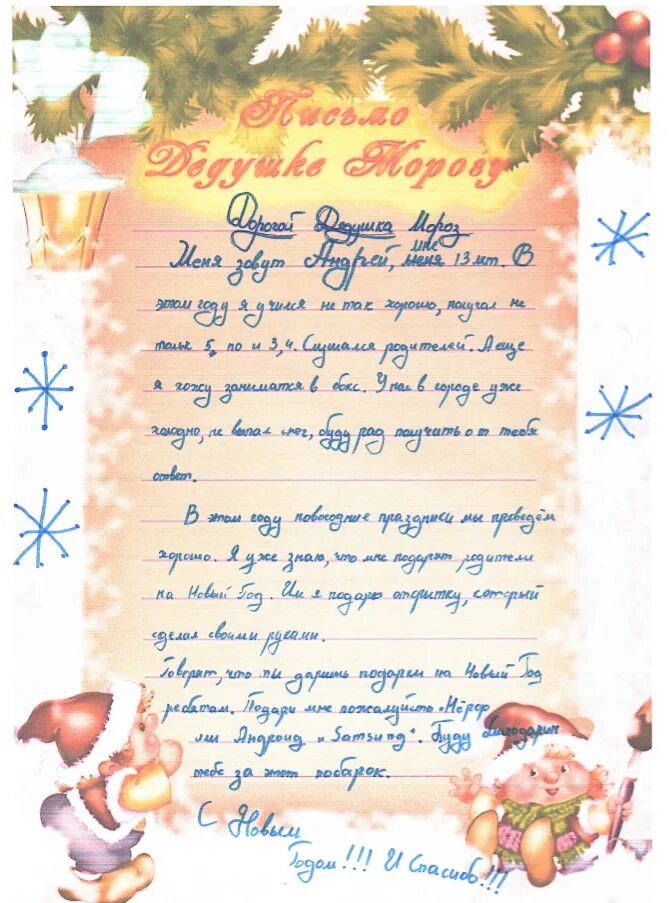 Письмо
Дедушке Морозу
Дорогой Дедушка Мороз
Меня зовут Андрей, мне меня 13 лет. В
этом году я учился не так хорошо, получал не
тольк 5, но и 3,4. Слушался родителей. А еще
я хожу заниматся в бокс. У нас в городе уже
холодно, не выпал снег, буду рад получить от тебя
ответ.
В этом году новогодние праздники мы проведём
хорошо. Я уже знаю, что мне подарят родители
на Новый Год. Им я подарю открытку, который
сделал своими руками.
Говорят, что ты даришь подарки на Новый Год
ребятам. Подари мне пожалуйсто "Нёрф"
или Андроид "Samsung". Буду благодарин
тебе за этот подарок.
С Новым
Годом!!! И Спасибо!!!